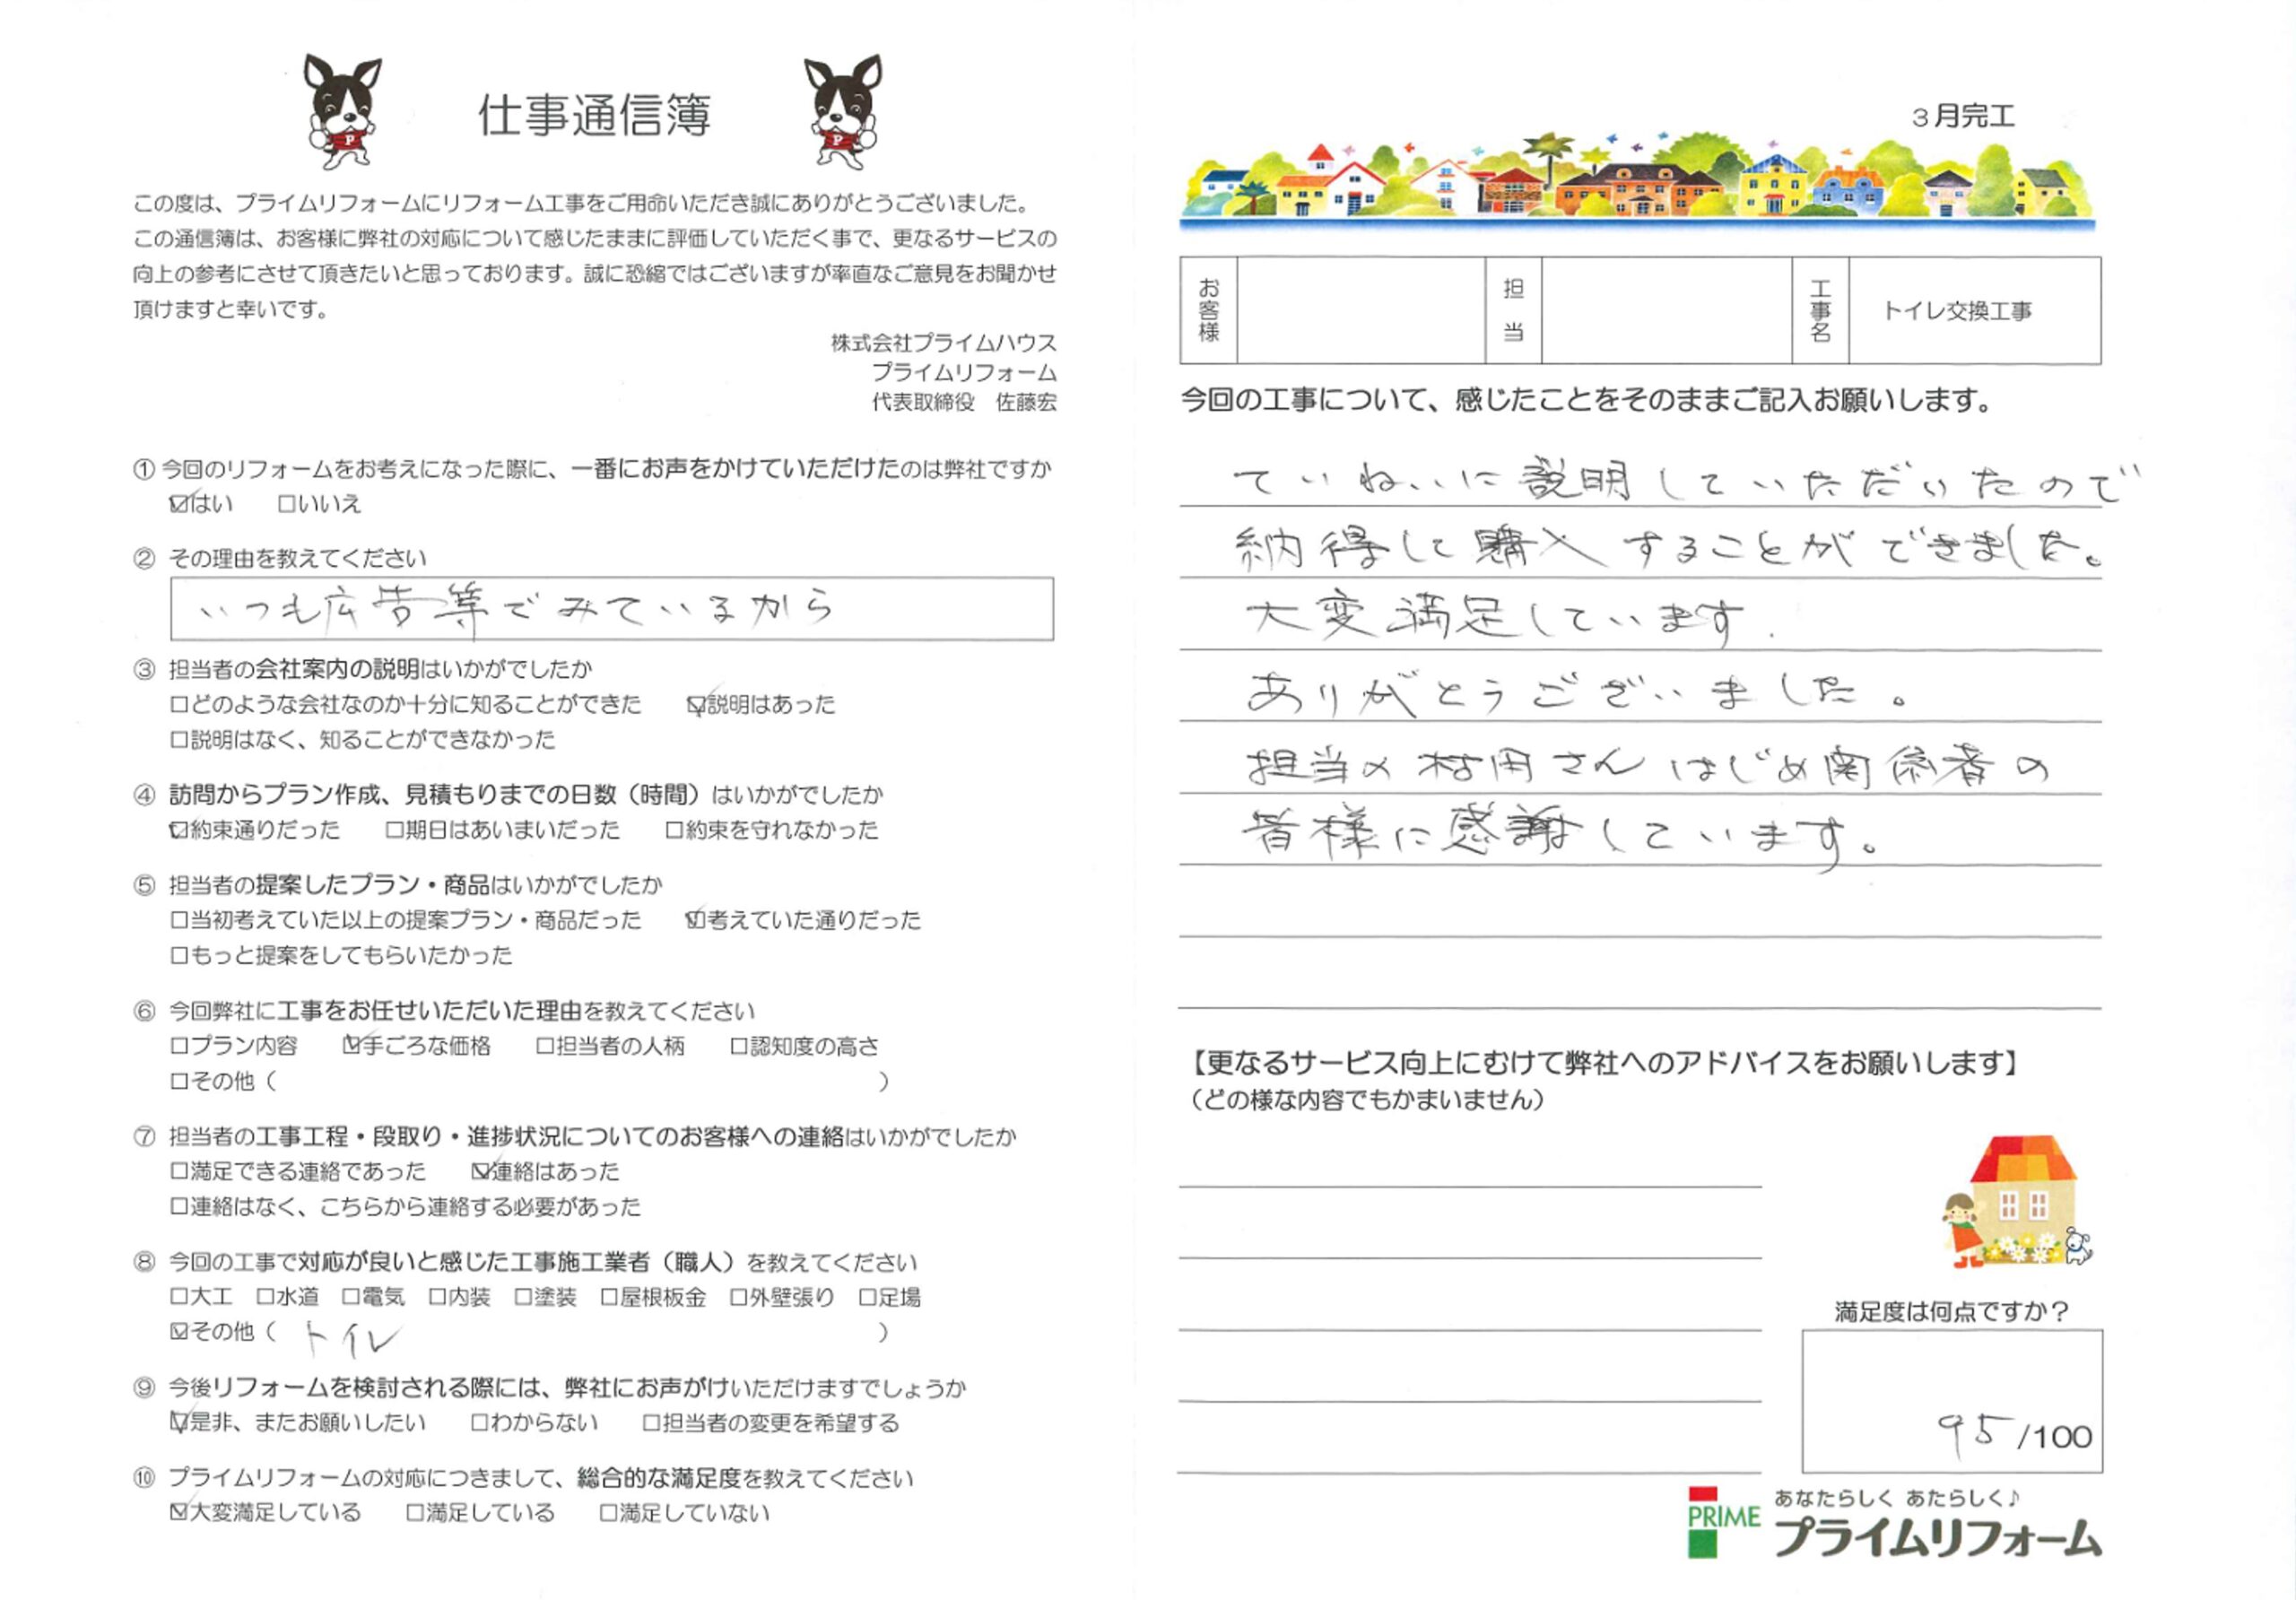 仕事通信簿
この度は、プライムリフォームにリフォーム工事をご用命いただき誠にありがとうございました。
この通信簿は、お客様に弊社の対応について感じたままに評価していただく事で、更なるサービスの
向上の参考にさせて頂きたいと思っております。誠に恐縮ではございますが率直なご意見をお聞かせ
頂けますと幸いです。
株式会社プライムハウス
プライムリフォーム
代表取締役　佐藤宏
① 今回のリフォームをお考えになった際に、一番にお声をかけていただけたのは弊社ですか
☑はい　□いいえ
② その理由を教えてください
いつも広告等でみているから
③ 担当者の会社案内の説明はいかがでしたか
□どのような会社なのか十分に知ることができた　☑説明はあった
□説明はなく、知ることができなかった
④ 訪問からプラン作成、見積もりまでの日数（時間）はいかがでしたか
☑約束通りだった　□期日はあいまいだった　□約束を守れなかった
⑤ 担当者の提案したプラン・商品はいかがでしたか
□当初考えていた以上の提案プラン・商品だった　☑考えていた通りだった
□もっと提案をしてもらいたかった
⑥ 今回弊社に工事をお任せいただいた理由を教えてください
□プラン内容　☑手ごろな価格　□担当者の人柄　□認知度の高さ
□その他（　）
⑦ 担当者の工事工程・段取り・進捗状況についてのお客様への連絡はいかがでしたか
□満足できる連絡であった　☑連絡はあった
□連絡はなく、こちらから連絡する必要があった
⑧ 今回の工事で対応が良いと感じた工事施工業者（職人）を教えてください
□大工　□水道　□電気　□内装　□塗装　□屋根板金　□外壁張り　□足場
☑その他（ トイレ ）
⑨ 今後リフォームを検討される際には、弊社にお声がけいただけますでしょうか
☑是非、またお願いしたい　□わからない　□担当者の変更を希望する
⑩ プライムリフォームの対応につきまして、総合的な満足度を教えてください
☑大変満足している　□満足している　□満足していない
3月完工
お客様　担当　工事名　トイレ交換工事
今回の工事について、感じたことをそのままご記入お願いします。
ていねいに説明していただいたので
納得して購入することができました。
大変満足しています.
ありがとうございました。
担当の村田さんはじめ関係者の
皆様に感謝しています。
【更なるサービス向上にむけて弊社へのアドバイスをお願いします】
（どの様な内容でもかまいません）
満足度は何点ですか？
95/100
PRIME
あなたらしく あたらしく♪
プライムリフォーム